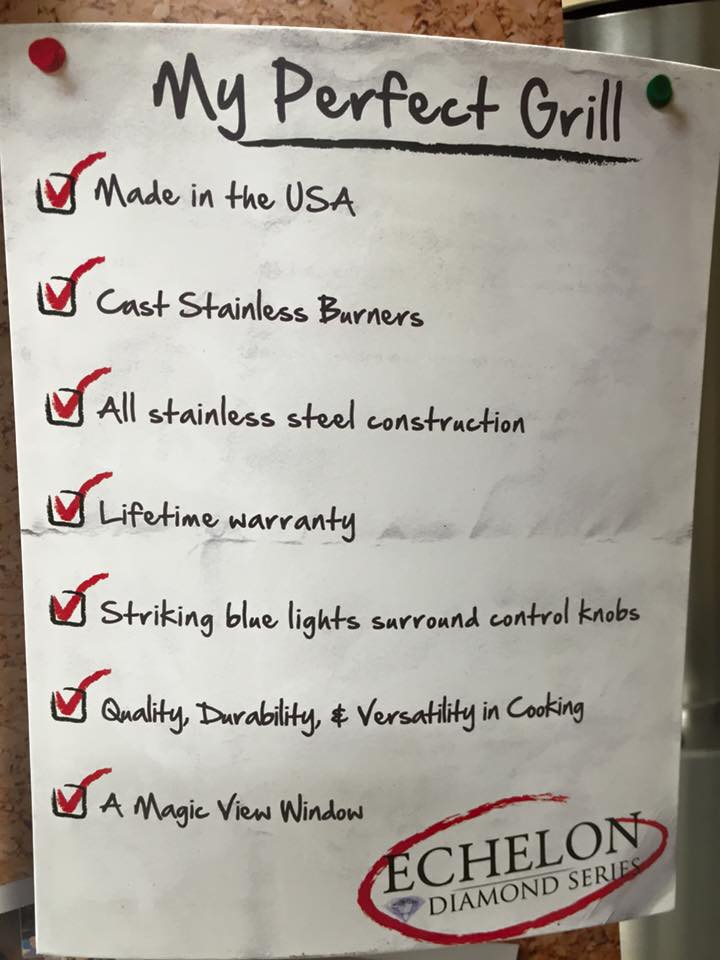 My Perfect Grill
Made in the USA
Cast Stainless Burners
All stainless steel construction
Lifetime warranty
Striking blue lights surround control knobs
Quality, Durability, & Versatility in Cooking
A Magic View Window
ECHELON
DIAMOND SERIES